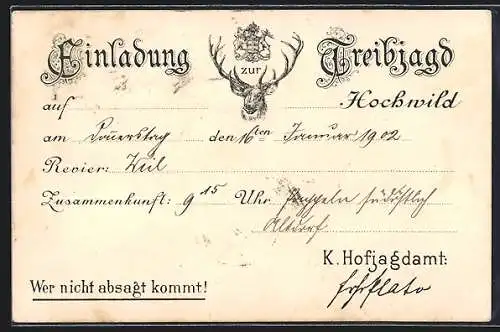 Einladung zur Treibjagd
auf Hochwild
am Donerstag den 16ten Januar 1902
Revier: Weil
Zusammenkunft: 9 15 Uhr südöstlich
Altdorf
K. Hofjagdamt:
Wer nicht absagt kommt!